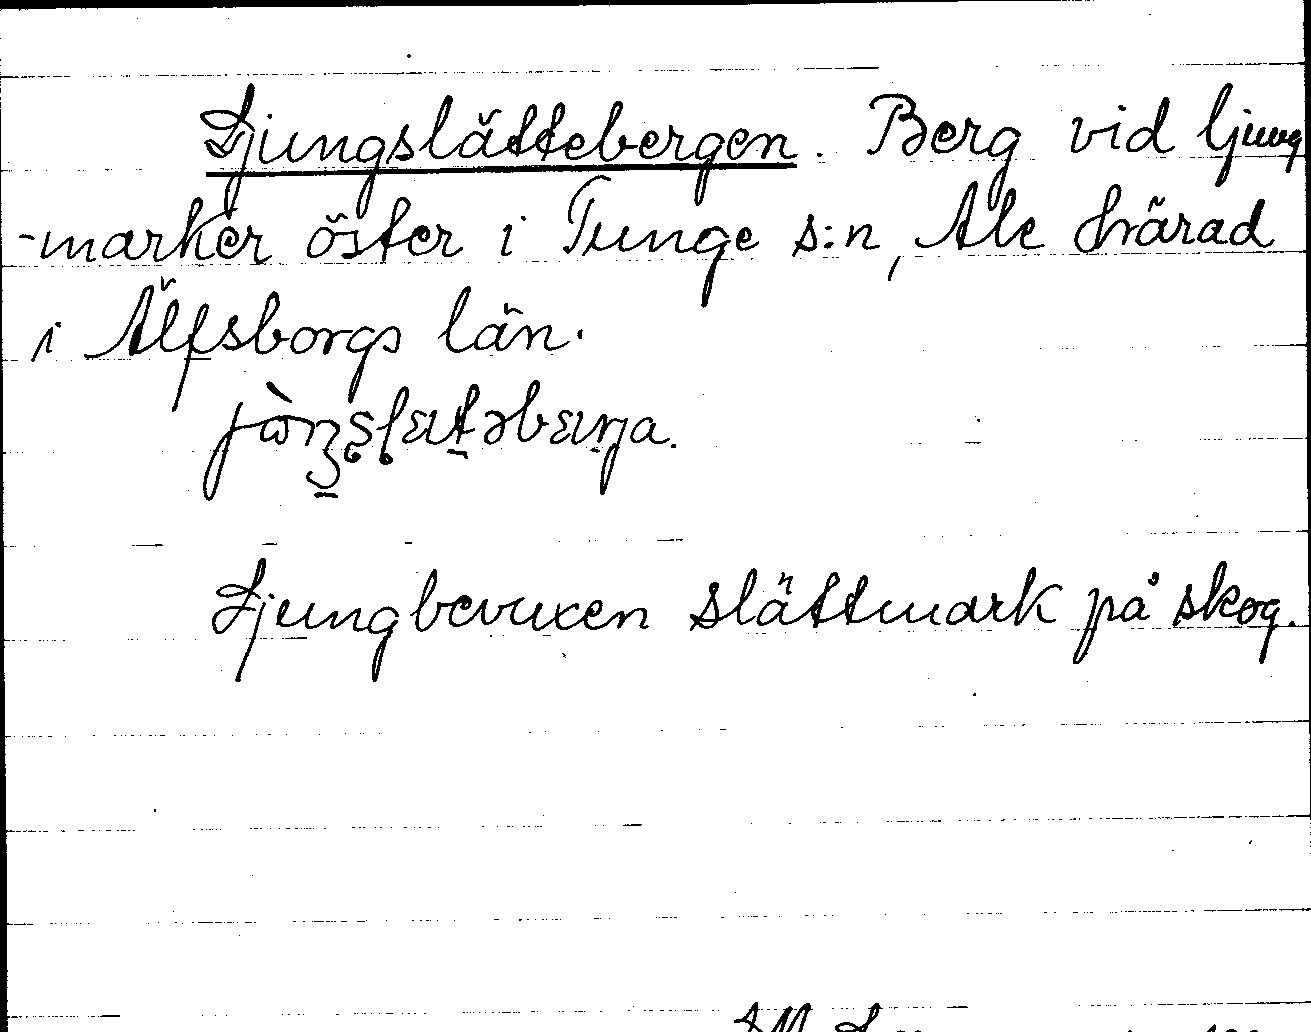 Ljungslättebergen. Berg vid ljung
-marker öster i Tunge s:n, Ale härad
i Älfsborgs län.
Ljungbevuxen slättmark på skog.